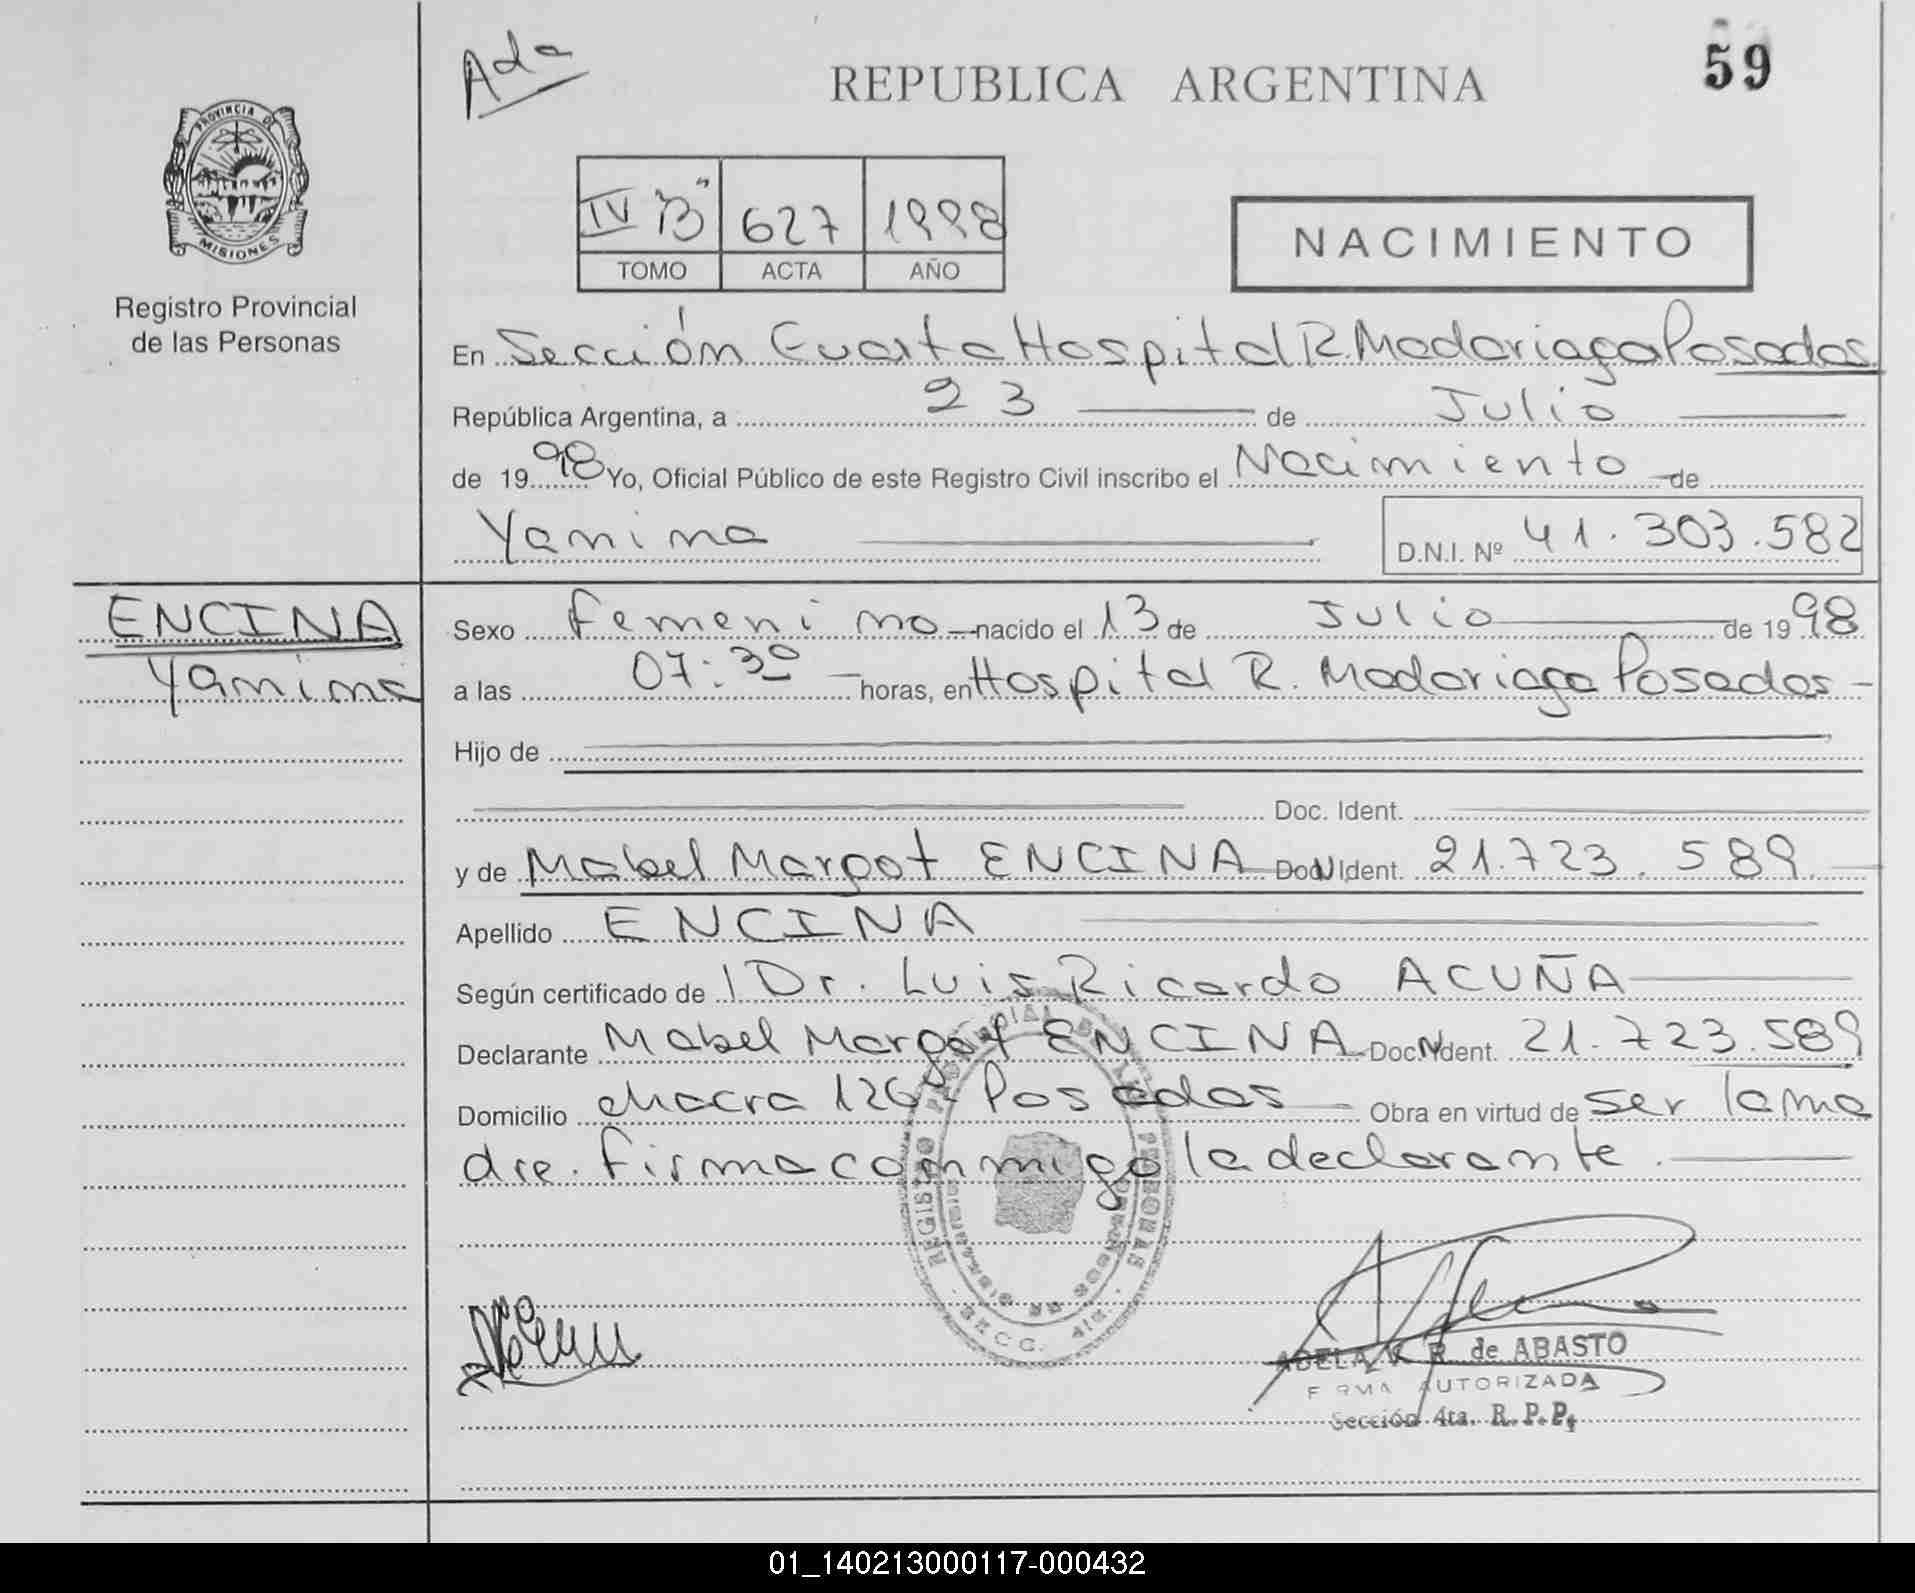 Ada
REPUBLICA ARGENTINA
59
PROVINCIA DE
MISIONES
Registro Provincial
de las Personas
IV "B" 627 1998
TOMO ACTA AÑO
NACIMIENTO
En Sección Cuarta Hospital R. Madariaga Posadas
República Argentina, a 23 de Julio
de 1998 Yo, Oficial Público de este Registro Civil inscribo el Nacimiento de
Yanina
D.N.I. Nº 41.303.582
ENCINA
Yanina
Sexo femenino nacido el 13 de Julio de 1998
a las 07:30 horas, en Hospital R. Madariaga Posadas
Hijo de
Doc. Ident.
y de Mabel Margot ENCINA Doc. Ident. 21.723.589
Apellido ENCINA
Según certificado de Dr. Luis Ricardo ACUÑA
Declarante Mabel Margot ENCINA Doc. Ident. 21.723.589
Domicilio chacra 126 Posadas Obra en virtud de ser la ma
dre. firma conmigo la declarante.
REGISTRO PROVINCIAL DE LAS PERSONAS
SECC. 4ta
ADELA V. R. de ABASTO
FIRMA AUTORIZADA
Sección 4ta. R.P.P.
01_140213000117-000432